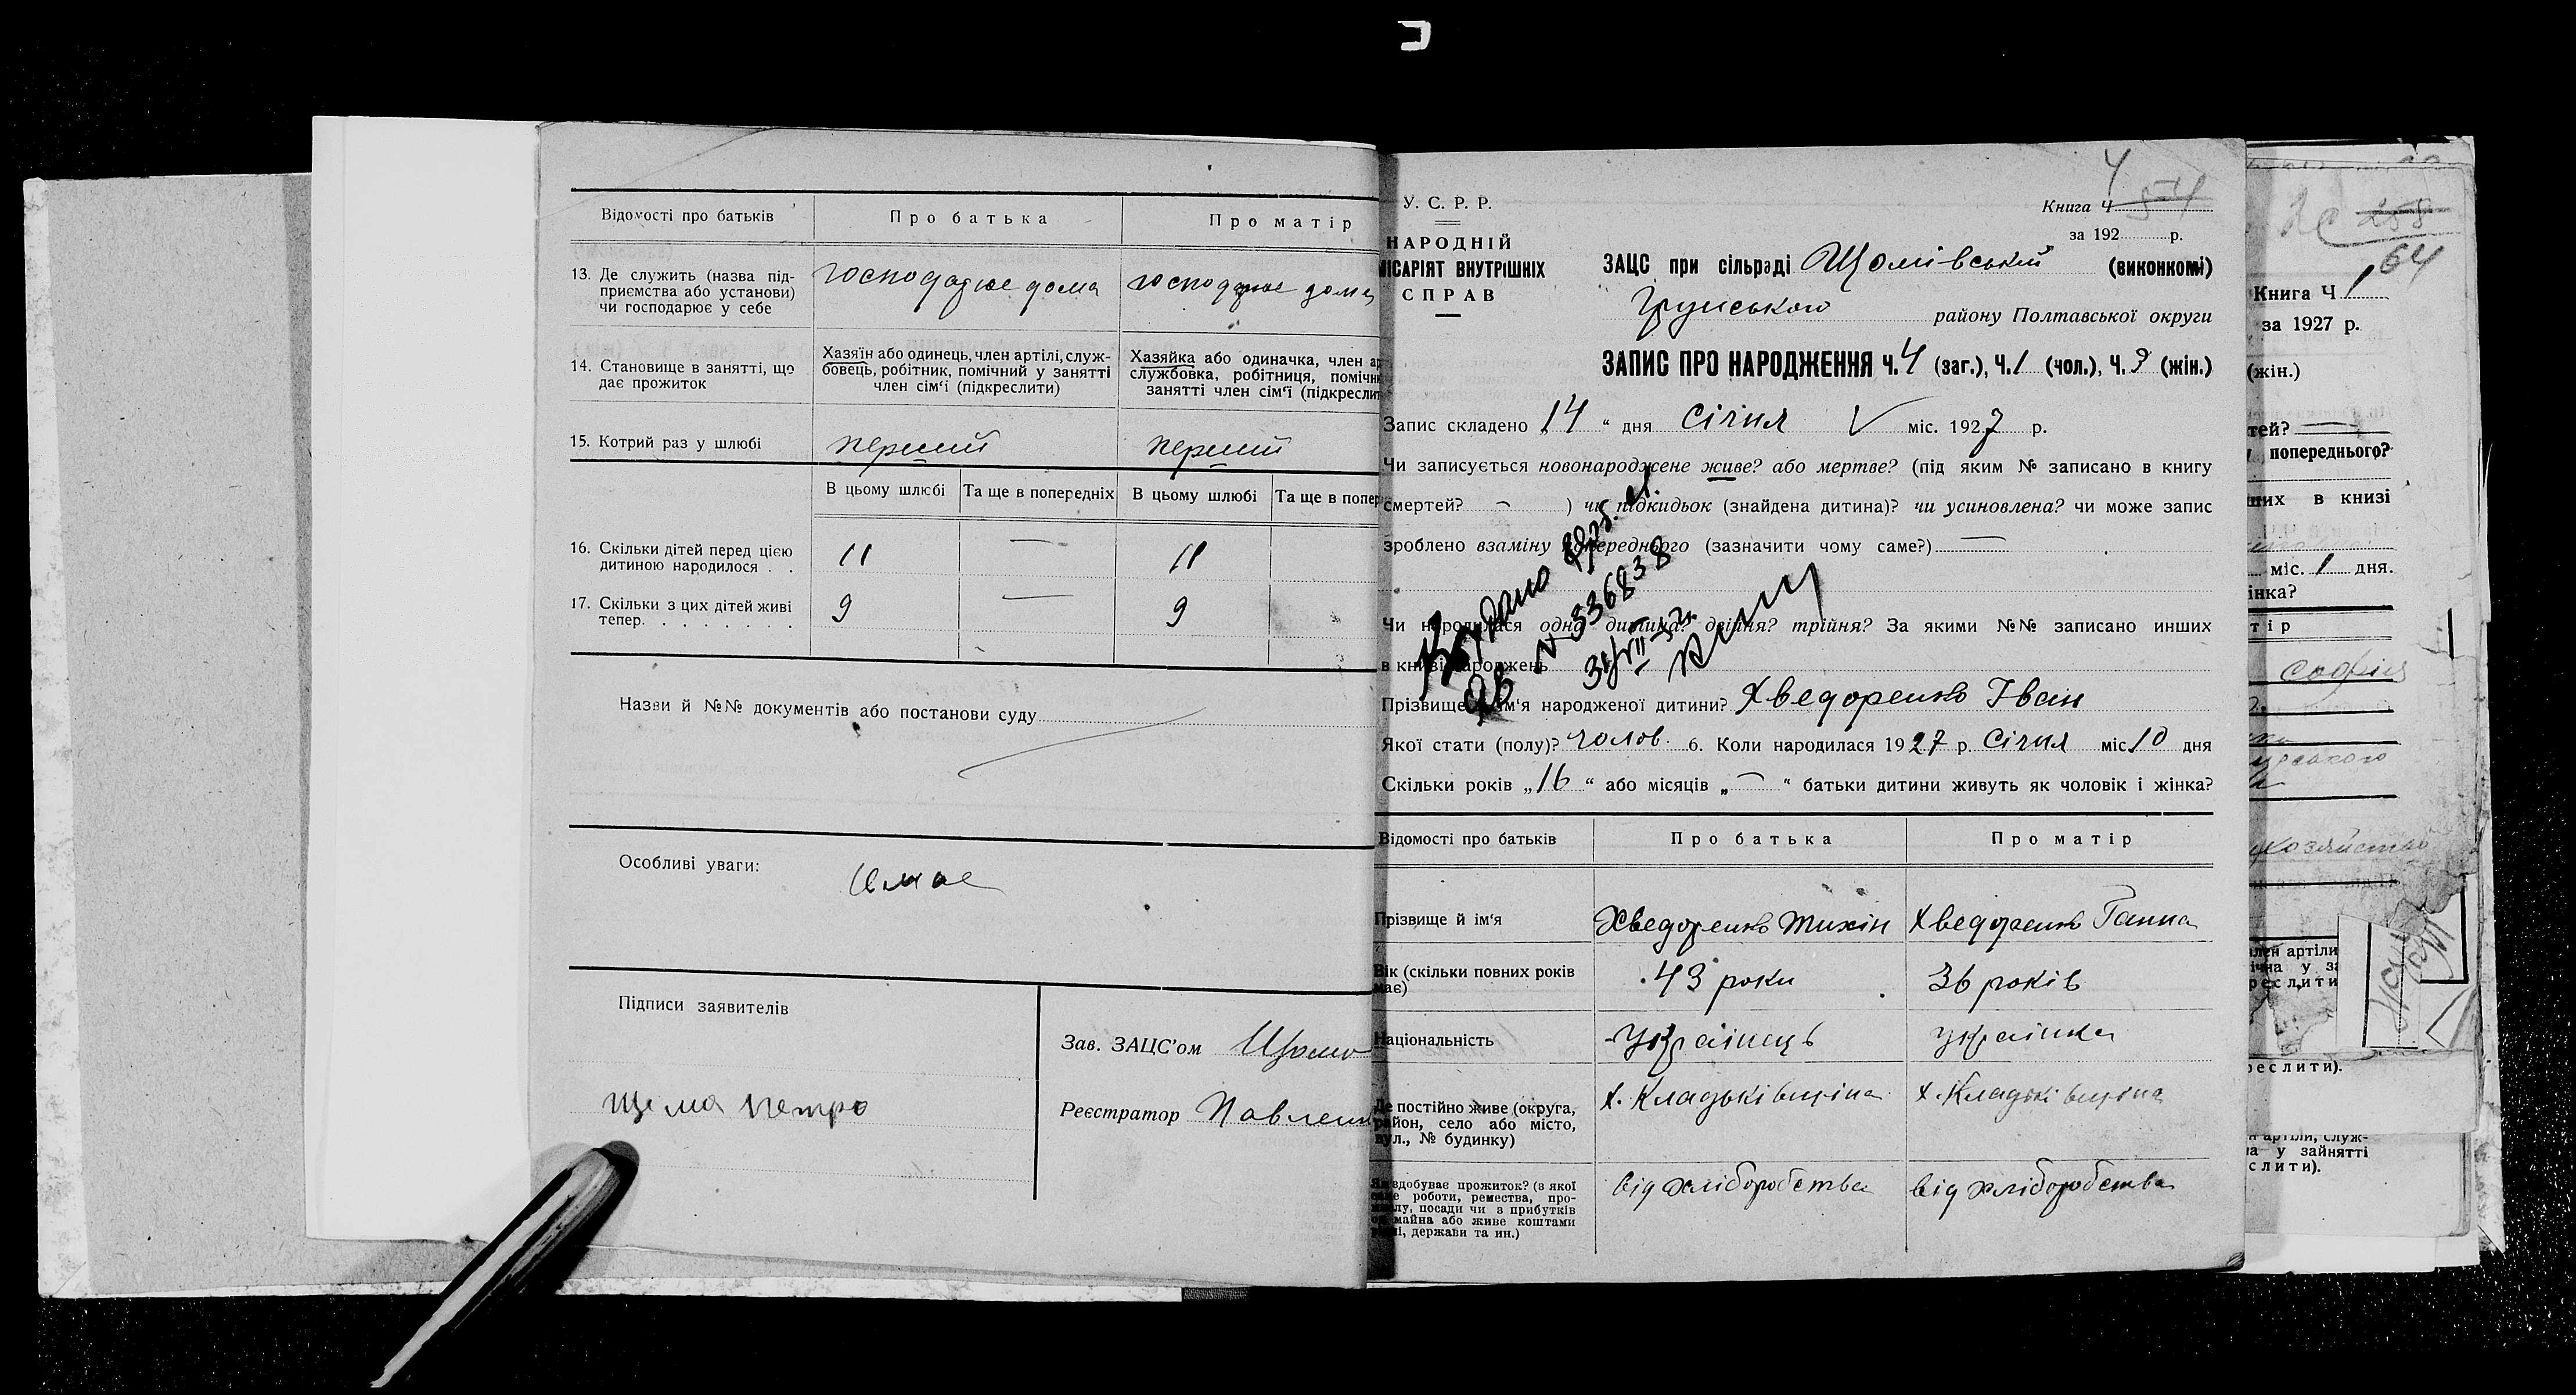 Відомості про батьків
Про батька
Про матір
13. Де служить (назва під-
приємства або установи)
чи господарює у себе
господарює дома
господарює дома
14. Становище в занятті, що
дає прожиток
Хазяїн або одинець, член артілі, служ-
бовець, робітник, помічний у занятті
член сім‘ї (підкреслити)
Хазяйка або одиначка, член ар
службовка, робітниця, помічн
занятті член сім‘ї (підкресли
15. Котрий раз у шлюбі
перший
перший
В цьому шлюбі
Та ще в попередніх
В цьому шлюбі
Та ще в попер
16. Скільки дітей перед цією
дитиною народилося . .
11
—
11
17. Скільки з цих дітей живі
тепер. . . . . . . .
9
—
9
Назви й №№ документів або постанови суду
Особливі уваги:
Підписи заявителів
Щома Петро
Зав. ЗАЦС’ом Щома
Реєстратор Павлен
У. С. Р. Р.
НАРОДНІЙ
ІСАРІЯТ ВНУТРІШНІХ
СПРАВ
4
54
Книга Ч
за 192 р.
ЗАЦС при сільраді Щомівській (виконкомі)
Грунського району Полтавської округи
ЗАПИС ПРО НАРОДЖЕННЯ Ч. 4 (заг.), Ч. 1 (чол.), Ч. 3 (жін.)
Запис складено „14“ дня січня міс. 1927 р.
Чи записується новонароджене живе? або мертве? (під яким № записано в книгу
смертей? — ) чи підкидьок (знайдена дитина)? чи усиновлена? чи може запис
зроблено взаміну попереднього (зазначити чому саме?) —
Чи народилася одна дитина? двійня? трійня? За якими №№ записано инших
в книзі народжень
Видано
№ 336838
Прізвище й ім‘я народженої дитини? Хведоренко Іван
Якої стати (полу)? чолов. 6. Коли народилася 1927 р. Січня міс 10 дня
Скільки років „16“ або місяців „—“ батьки дитини живуть як чоловік і жінка?
Відомості про батьків
Про батька
Про матір
Прізвище й ім‘я
Хведоренко Тихін
Хведоренко Ганна
Вік (скільки повних років
має)
43 роки
36 років
Національність
Українець
українка
Де постійно живе (округа,
район, село або місто,
вул., № будинку)
х. Кладьківщина
х. Кладьківщина
Як здобуває прожиток? (з якої
саме роботи, ремества, про-
мислу, посади чи з прибутків
од майна або живе коштами
рідні, держави та ин.)
від хліборобства
від хліборобства
258
64
Книга Ч 1
за 1927 р.
(жін.)
тей? —
попереднього?
них в книзі
міс. 1 дня.
інка?
тір
Софія
лен артіли
ічна у за
реслити
реслити).
н артіли, служ-
на у зайнятті
слити).